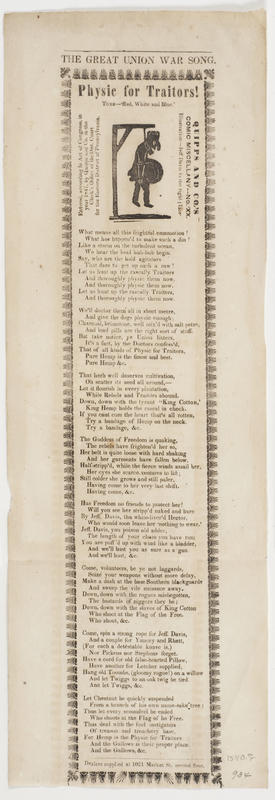 THE GREAT UNION WAR SONG.
Physic for Traitors!
TUNE—"Red, White and Blue."
Entered, according to Act of Congress, in
year 1861, by Quipps and Co. in the
Clerk's Office of the Dist. Court
for the Eastern District of Pennsylvania.
QUIPPS AND CO.'S
COMIC MISCELLANY—NO. XX.
What means all this frightful commotion!
What has happen'd to make such a din!
Like a storm on the turbulent ocean,
We hear the loud hub-bub begin.
Say, who are the bold agitators
That dare to get up such a row!
Let us hunt up the rascally Traitors
And thoroughly physic them now.
And thoroughly physic them now.
Let us hunt up the rascally Traitors,
And thoroughly physic them now.
We'll doctor them all in short metre,
And give the dogs physic enough:
Charcoal, brimstone, well mix'd with salt petre,
And lead pills are the right sort of stuff.
But take notice, ye Union Sisters,
It's a fact, by the Doctors confess'd,
That of all kinds of Physic for Traitors,
Pure Hemp is the finest and best.
Pure Hemp &c.
That herb well deserves cultivation,
Oh scatter its seed all around,—
Let it flourish in every plantation,
White Rebels and Traitors abound.
Down, down with the tyrant "King Cotton,"
King Hemp holds the rascal in check.
If you cant cure the heart that's all rotten,
Try a bandage of Hemp on the neck.
Try a bandage, &c.
The Goddess of Freedom is quaking,
The rebels have frighten'd her so,
Her belt is quite loose with hard shaking
And her garments have fallen below.
Half-stripp'd, while the fierce winds assail her,
Her eyes she scarce ventures to lift;
Still colder she grows and still paler,
Having come to her very last shift.
Having come, &c.
Has Freedom no friends to protect her!
Will you see her stripp'd naked and bare
By Jeff. Davis, the
Who would soon leave her 'nothing to wear.'
Jeff. Davis, you poison old adder,
The length of your chain you have run;
You are puff'd up with wind like a bladder,
And we'll bust you as sure as a gun.
And we'll bust, &c.
Come, volunteers, be ye not laggards,
Seize your weapons without more delay,
Make a dash at these Southern blackguards
And sweep the vile nuisance away.
Down, down with the rogues misbegotten,
The bastards of niggers they be;
Down, down with the slaves of King Cotton
Who shoot at the Flag of the Free.
Who shoot, &c.
Come, spin a strong rope for Jeff. Davis,
And a couple for Yancey and Rhett,
(For each a detestable knave is,)
Nor Pickens nor Stephens forget.
Have a cord for old false-hearted Pillow,
Have another for Letcher supplied.
Hang old Toombs, (gloomy rogue) on a willow
And let Twiggs to an oak twig be tied.
And let Twiggs, &c.
Let Chestnut be quickly suspended
From a branch of his own name-sake tree:
Thus let every scoundrel be ended
Who shoots at the Flag of he Free.
Thus deal with the foul instigators
Of treason and treachery base.
For Hemp is the Physic for Traitors
And the Gallows is their proper place.
And the Gallows, &c.
Dealers supplied at 1021 Market St, second floor.